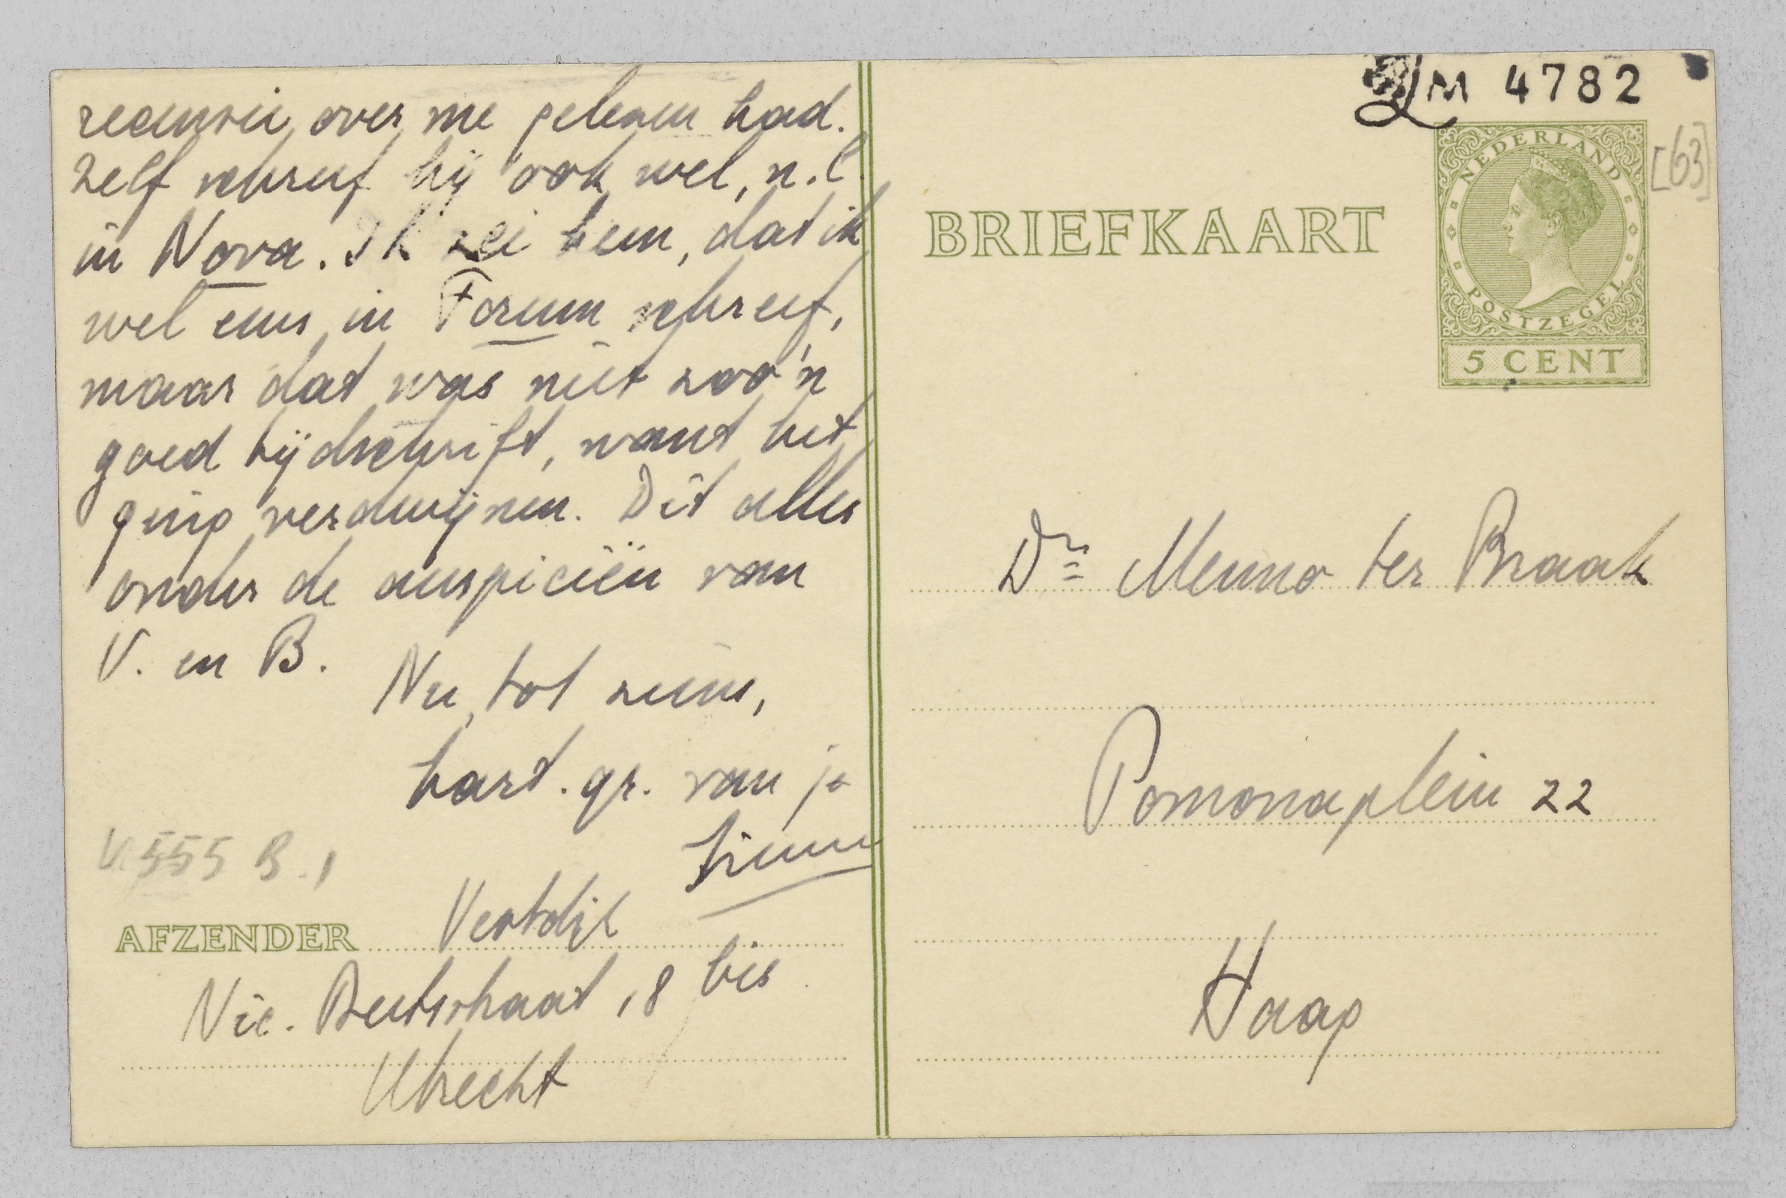 recensie over me gelezen had.
Zelf schreef hij ook wel, n.l.
in Nova. Ik zei hem, dat ik
wel eens in Forum schreef,
maar dat was niet zoo'n
goed tijdschrift, want het
ging verdwijnen. Dit alles
onder de auspiciën van
V. en B.
Nu, tot ziens,
hart. gr. van je
Simon
V. 555 B. 1
AFZENDER Vestdijk
Nic. Beetsstraat 18 bis
Utrecht
LM 4782
[63]
NEDERLAND
POSTZEGEL
5 CENT
BRIEFKAART
Dr Menno ter Braak
Pomonaplein 22
Haag